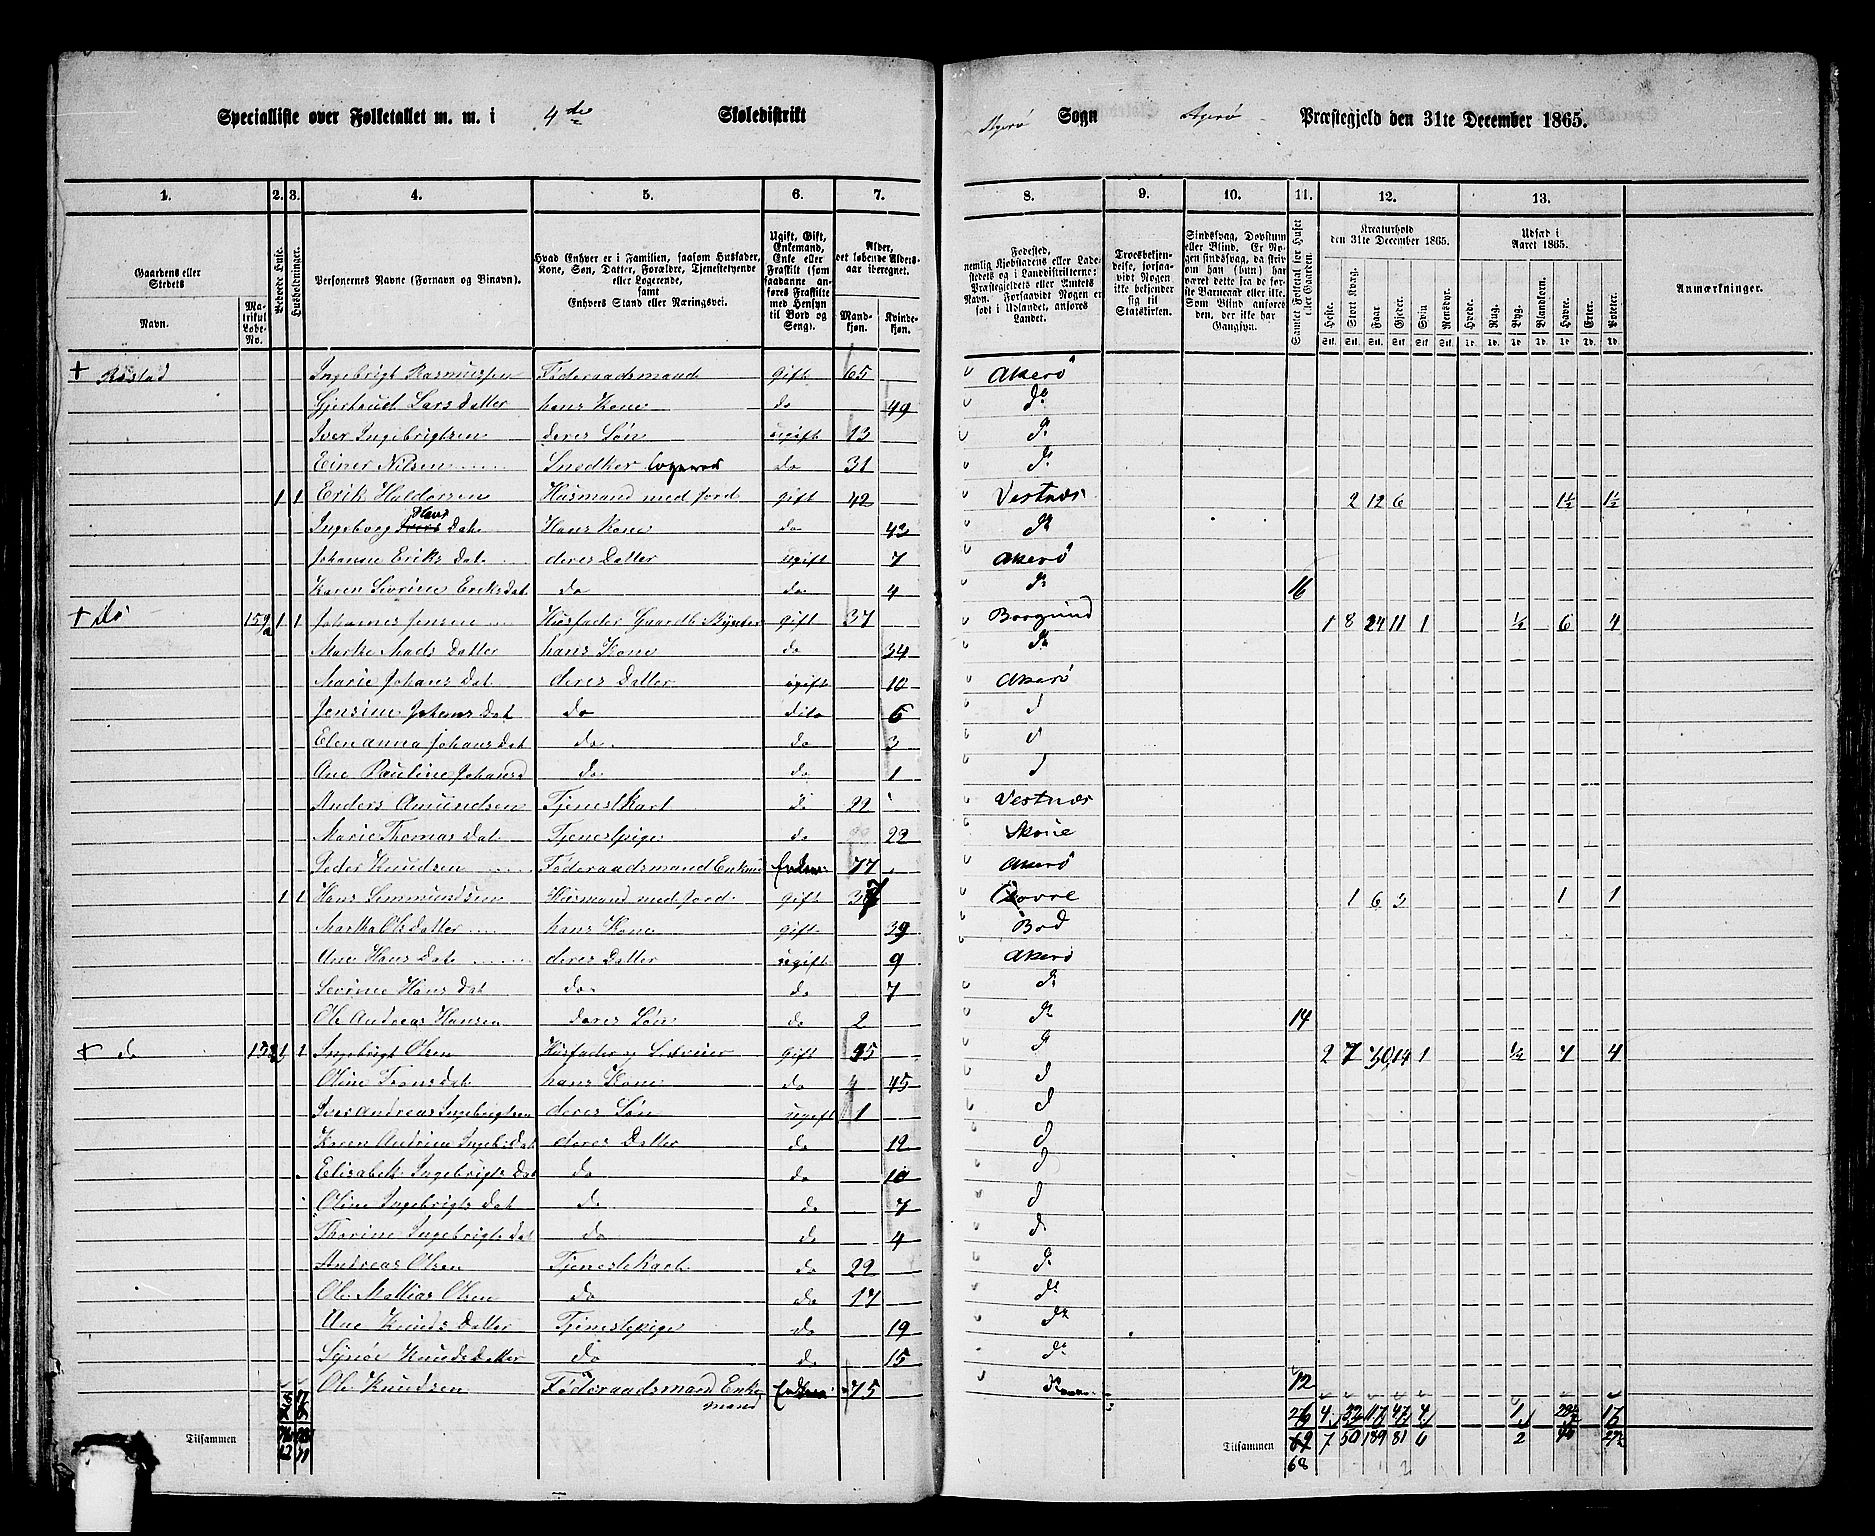 Specialliste over Folketallet m. m. i 4de Skoledistrikt
Agerø Sogn Agerø Præstegjeld den 31te December 1865.
1. 2. 3. 4. 5. 6. 7. 8. 9. 10. 11. 12. 13.
Gaardens eller Stedets
Navn.
Matrikul Løbe-No.
Beboede Huse.
Husholdninger.
Personernes Navne (Fornavn og Binavn).
Hvad Enhver er i Familien, saasom Husfader, Kone, Søn, Datter, Forældre, Tjenestetyende eller Logerende, samt Enhvers Stand eller Næringsvei.
Ugift, Gift, Enkemand, Enke eller Fraskilt (som saadanne anføres Fraskilte med Hensyn til Bord og Seng).
Alder, det løbende Aldersaar iberegnet.
Mandkjøn. Kvindekjøn.
Fødested, nemlig Kjøbstadens eller Ladestedets og i Landdistrikterne: Præstegjeldets eller Amtets Navn. Forsaavidt Nogen er født i Udlandet, anføres Landet.
Troesbekjendelse, forsaavidt Nogen ikke bekjender sig til Statskirken.
Sindssvag, Døvstum eller Blind. Er Nogen sindssvag, da skrives om han (hun) har været det fra de første Barneaar eller ikke. Som Blind anføres den, der ikke har Gangsyn.
Samlet Folketal for Huset eller Gaarden.
Kreaturhold den 31te December 1865.
Heste. Stort Kvæg. Faar. Gjeder. Sviin. Rensdyr.
Udsæd i Aaret 1865.
Hvede. Rug. Byg. Blandkorn. Havre. Erter. Poteter.
Anmærkninger.
+ Røstad Ingebrigt Rasmussen Føderaadsmand gift 65 Akerø
Gjertrud Lars Datter hans Kone do 49 do
Iver Ingebrigtsen deres Søn ugift 13 do
Einer Nilsen Snedker logerer do 31 do
1 1 Erik Haldorsen Husmand med jord gift 42 Vestnæs 2 12 6 1½ 1½
Ingeborg Dat. Hans Kone do 43 do
Johanne Eriks Dat. deres Datter ugift 7 Akerø
Karen Sivrine Eriksdat do do. 4 do 16
+ do 159a 1 1 Johannes Jensen Husfader Gaardb. gift 37 Borgund 1 8 24 11 1 ¼ 6 4
Marte Mads Datter hans Kone do 34 do
Marie Johans Dat. deres Datter ugift 10 Akerø
Jensine Johans Dat do dito 6 d
Elenanna Johans Dat do. do 3 d
Ane Pauline Johans d do do 1 d
Anders Amundsen Tjenestkarl d 22 Vestnæs
Marie Thomas Dat. Tjenestpige do 22
Peder Knudsen Føderaadsmand Enkm 77 Akerø
1 1 Hans Semmundsen Husmand med jord. gift 37 Dovre 1 6 3 1 1
Martha Ols Datter hans Kone gift 39 Bod
Ane Hans Dat. deres Datter ugift 9 Akerø
Sevrine Hans Dat do. do 7 do
Ole Andreas Hansen deres Søn do 2 do 14
+ do 1 1 Ingebrigt Olsen Husfader og Selveier gift 55 d 2 7 30 14 1 ¼ 7 4
Oline Tronsdat hans Kone do 45 d
Iver Andreas Ingebrigtsen deres Søn ugift 1 d
Karen Andrine Ingeb. Dat deres Datter do 12 d
Elisabet Ingebrigts Dat do do 10 d
Oline Ingebrigts Dat do do 7 d
Thorine Ingebrigts Dat do do 4 d
Andreas Olsen Tjenestekarl do 22 do
Ole Mattias Olsen do do 17 do
Ane Knuds Datter Tjenestepige do 19 do
Synøe Knudsdatter do do 15 do
Ole Knudsen Føderaadsmand Enkemand 75 12
4 32 117 47 4 17
Tilsammen
Tilsammen 69 7 50 189 81 6 2
68